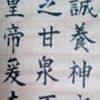 誠養神
之甘泉不
皇帝爰在